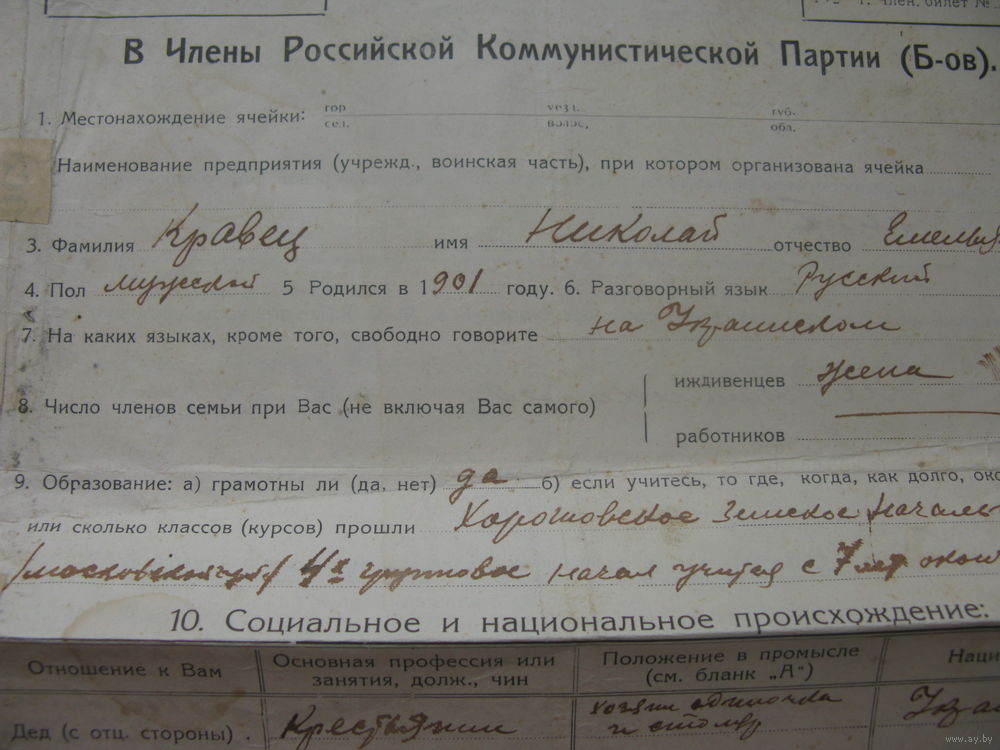 1. Член. билет №
В Члены Российской Коммунистической Партии (Б-ов).
1. Местонахождение ячейки: гор. уезд. губ.
сел. волос, обл.
Наименование предприятия (учрежд., воинская часть), при котором организована ячейка
3. Фамилия Кравец имя Николай отчество Емелья
4. Пол мужской 5 Родился в 1901 году. 6. Разговорный язык Русский
7. На каких языках, кроме того, свободно говорите на Украинском
8. Число членов семьи при Вас (не включая Вас самого) иждивенцев жена
работников
9. Образование: а) грамотны ли (да, нет) да б) если учитесь, то где, когда, как долго, око
или сколько классов (курсов) прошли Хорошовское Земское Начальн
4х групповое начал учится с 7 лет окон
10. Социальное и национальное происхождение:
Отношение к Вам Основная профессия или занятия, долж., чин Положение в промысле (см. бланк „А") Наци
Дед (с отц. стороны) . Крестьянин хозяин одиночка Укра
www.ay.by